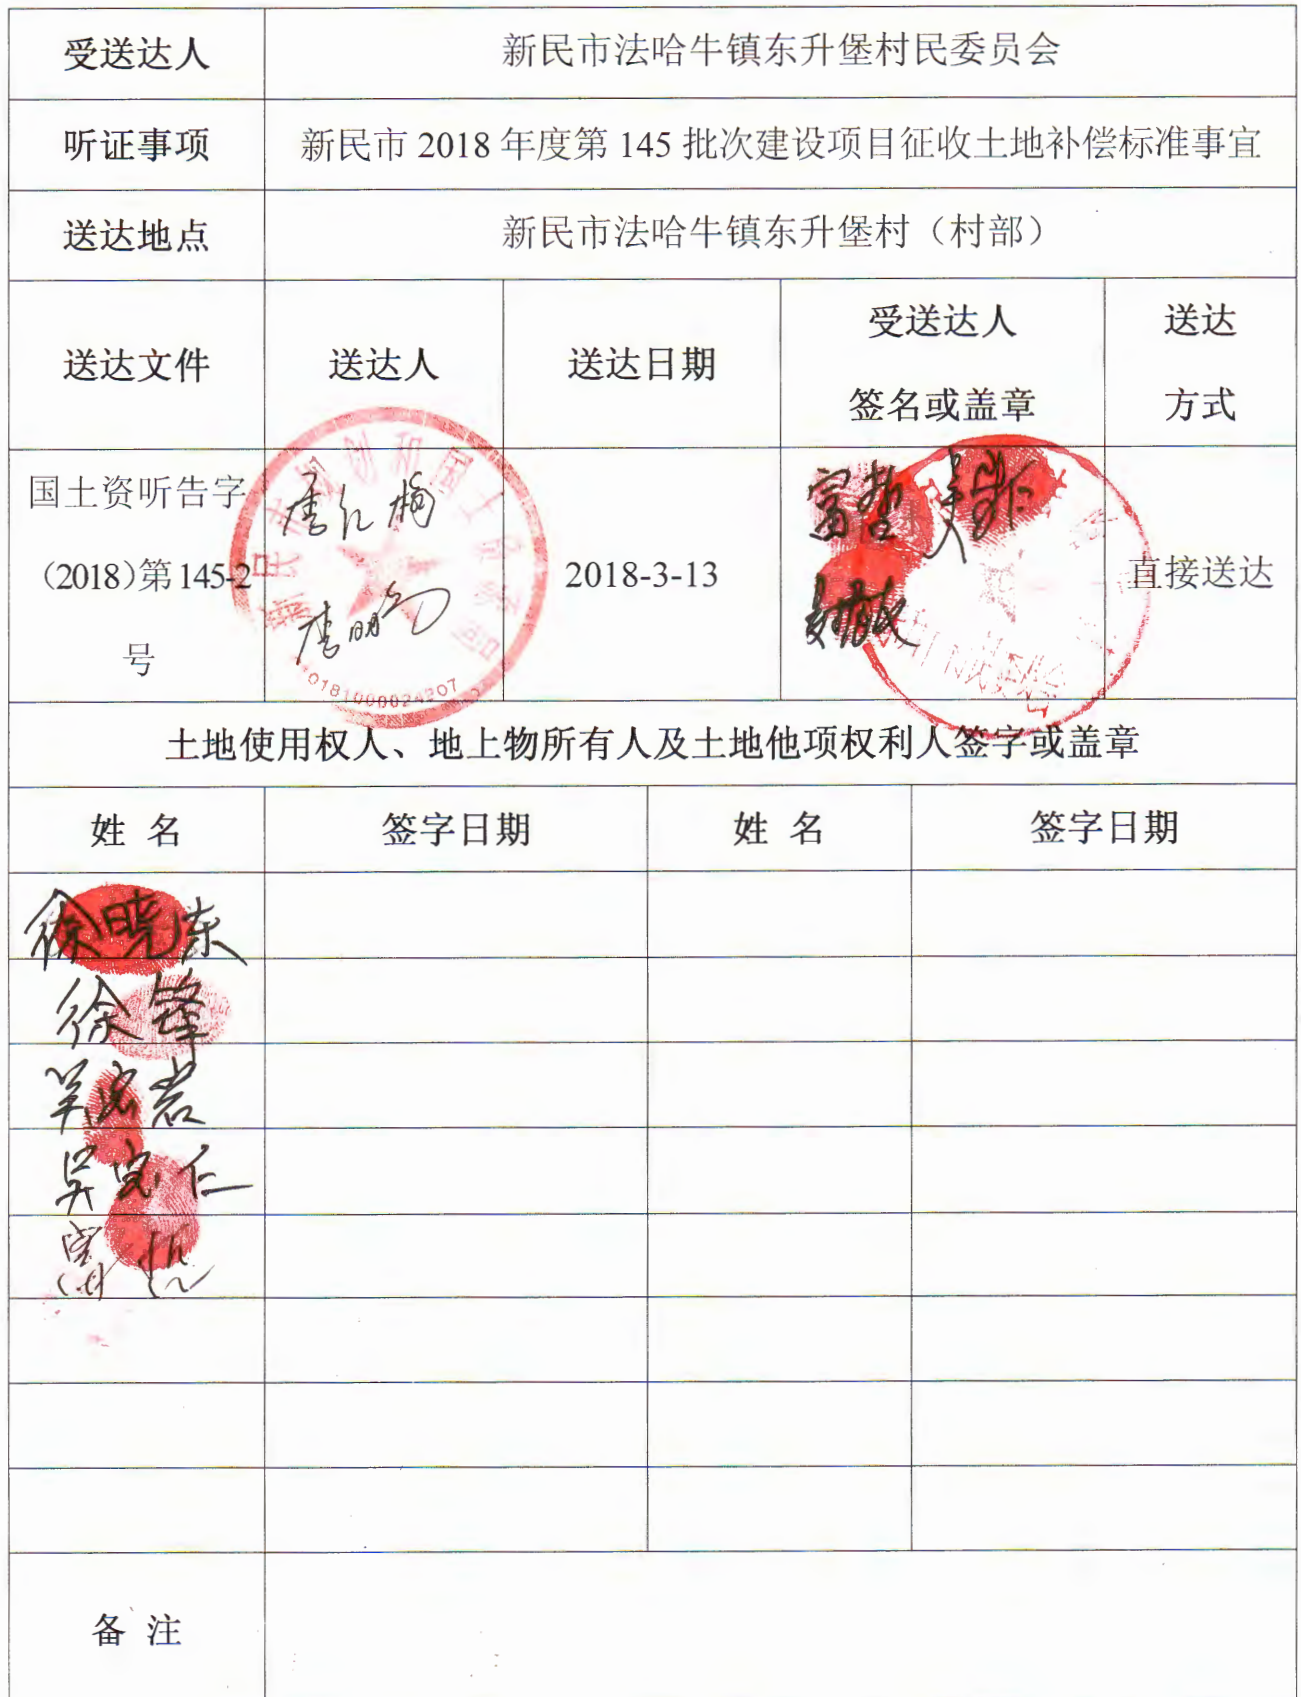 受送达人 新民市法哈牛镇东升堡村民委员会
听证事项 新民市 2018 年度第 145 批次建设项目征收土地补偿标准事宜
送达地点 新民市法哈牛镇东升堡村（村部）
送达文件 送达人 送达日期 受送达人 签名或盖章 送达 方式
国土资听告字
（2018）第 145-2
号
2018-3-13
直接送达
土地使用权人、地上物所有人及土地他项权利人签字或盖章
姓 名 签字日期 姓 名 签字日期
徐晓东
徐锋
吴宝仁
备 注